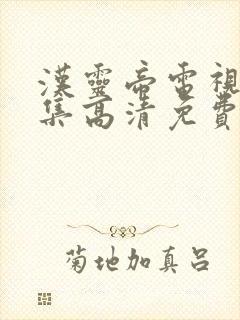 漢靈帝電視
集高清免費
菊地加真呂